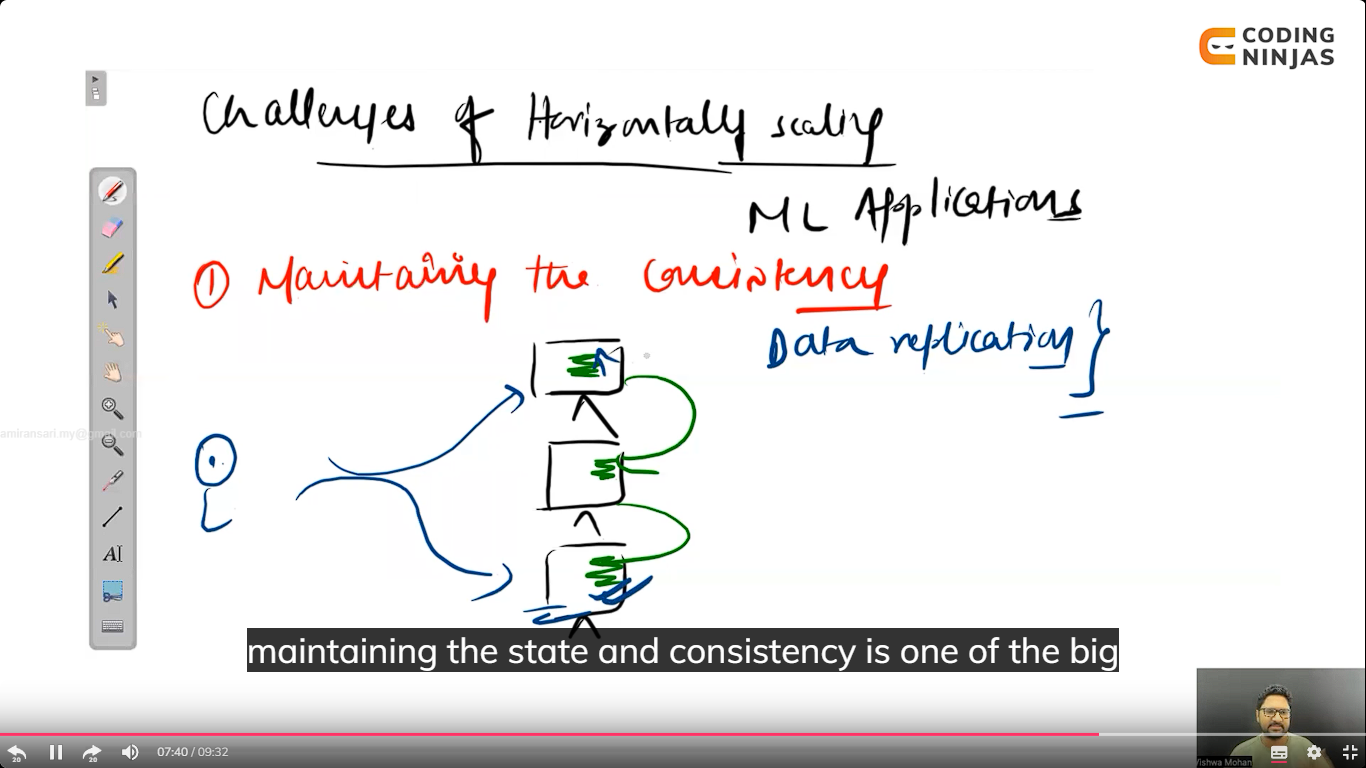 CODING
NINJAS
Challenges of Horizontally scaling
ML Applications
① Maintaining the Consistency
Data replication
amiransari.my@gmail.com
AI
maintaining the state and consistency is one of the big
20
20
07:40 / 09:32
Vishwa Mohan